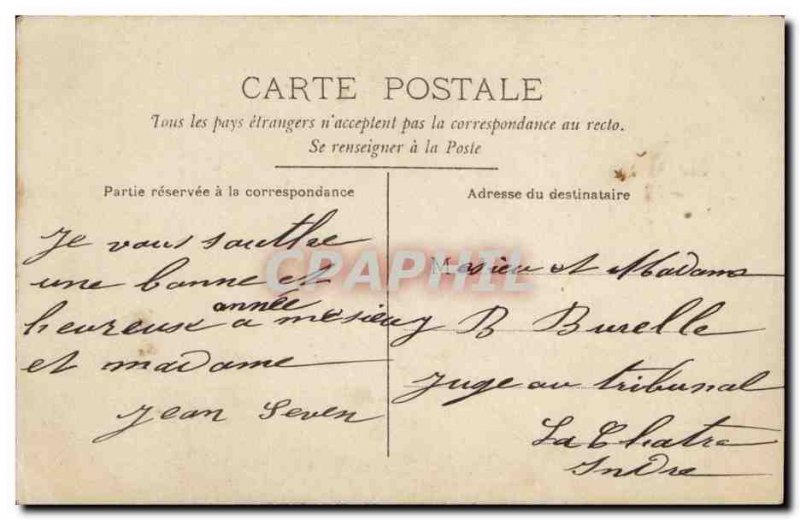 CARTE POSTALE
Tous les pays étrangers n'acceptent pas la correspondance au recto.
Se renseigner à la Poste
Partie réservée à la correspondance
Je vous southe
une bonne et
heureux année a mesieu
et madame
Jean Seven
Adresse du destinataire
Mesieu et Madame
B Burelle
Juge au tribunal
La Chatre
Indre
CPAPHIL